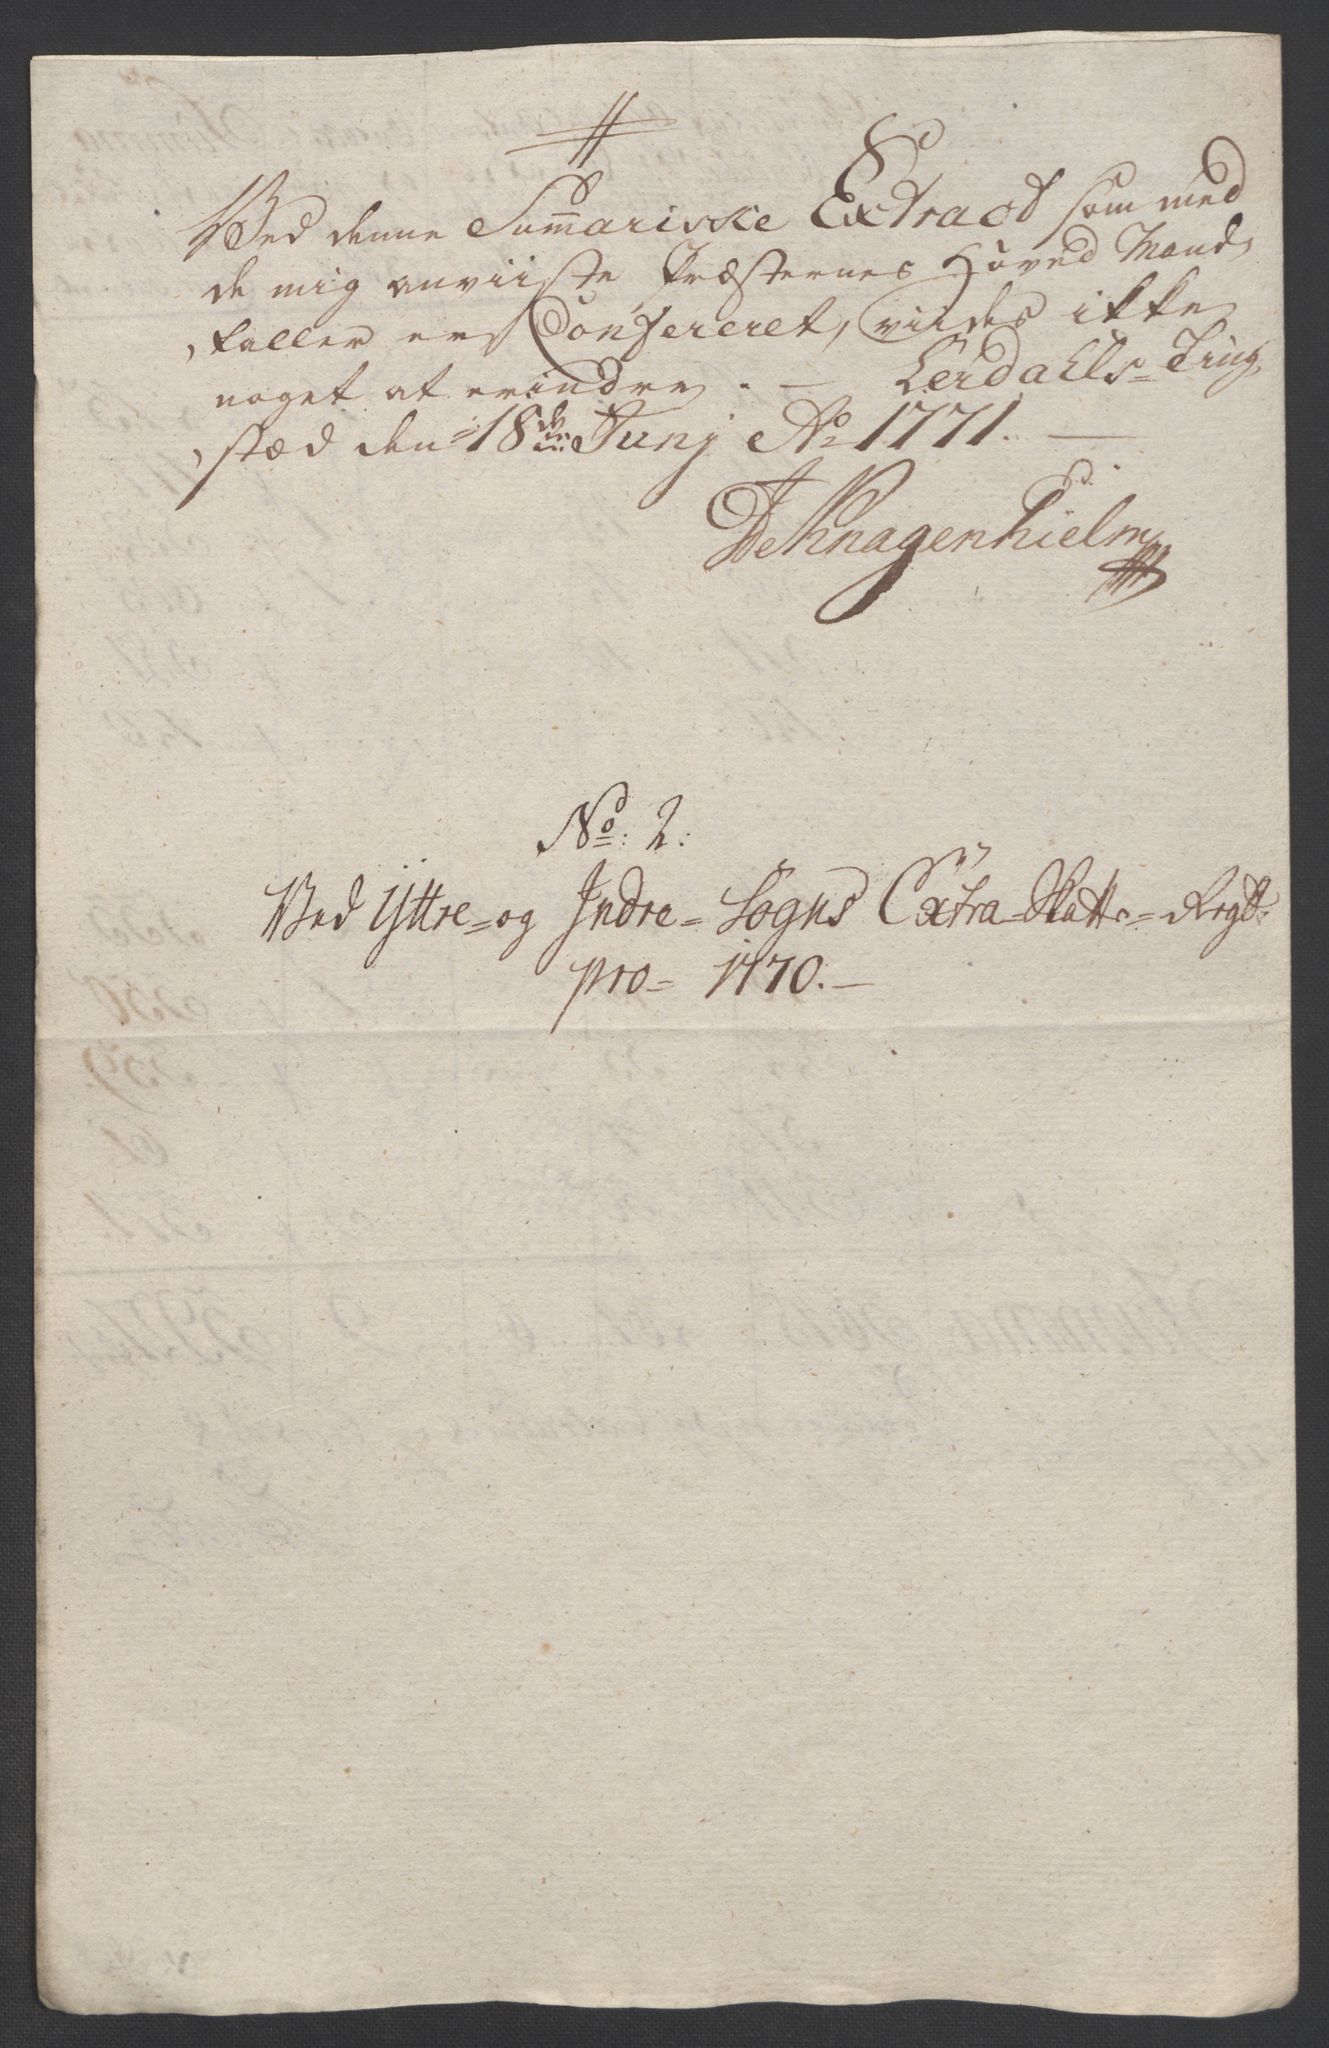 Ved denne Summariske Extract som med
de mig anviiste Præsternes Hoved Mand,
taller er Confereret, vides ikke
noget at erindre. — Lerdahls Ting,
stæd den 18de Junj Ao 1771. —
De Knagenhielm
No: 2:
Ved Yttre- og Indre- Sogns Extra-Skatte- Regsk:
pro- 1770. —